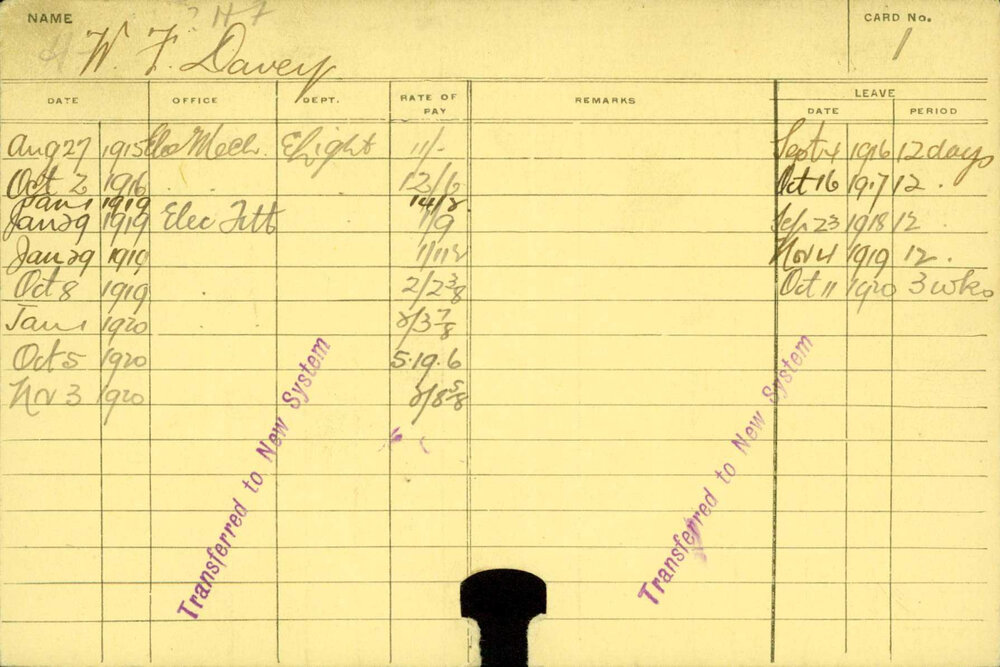 NAME W. F. Davey CARD No. 1
DATE OFFICE DEPT. RATE OF PAY REMARKS LEAVE
DATE PERIOD
Aug 27 1915 Elec Mech. E Light 11/- Sept 4 1916 12 days
Oct 2 1916 . . 12/6 Oct 16 1917 12 .
Jan 1 1919 14/8
Jan 29 1919 Elec Fitt 1/9 Sep 23 1918 12
Jan 29 1919 Nov 4 1919 12 .
Oct 8 1919 . 2/2 3/8 Oct 11 1920 3 wks
Jan 1 1920 2/3 7/8
Oct 5 1920 5.19.6
Nov 3 1920 2/8 5/8
Transferred to New System
Transferred to New System